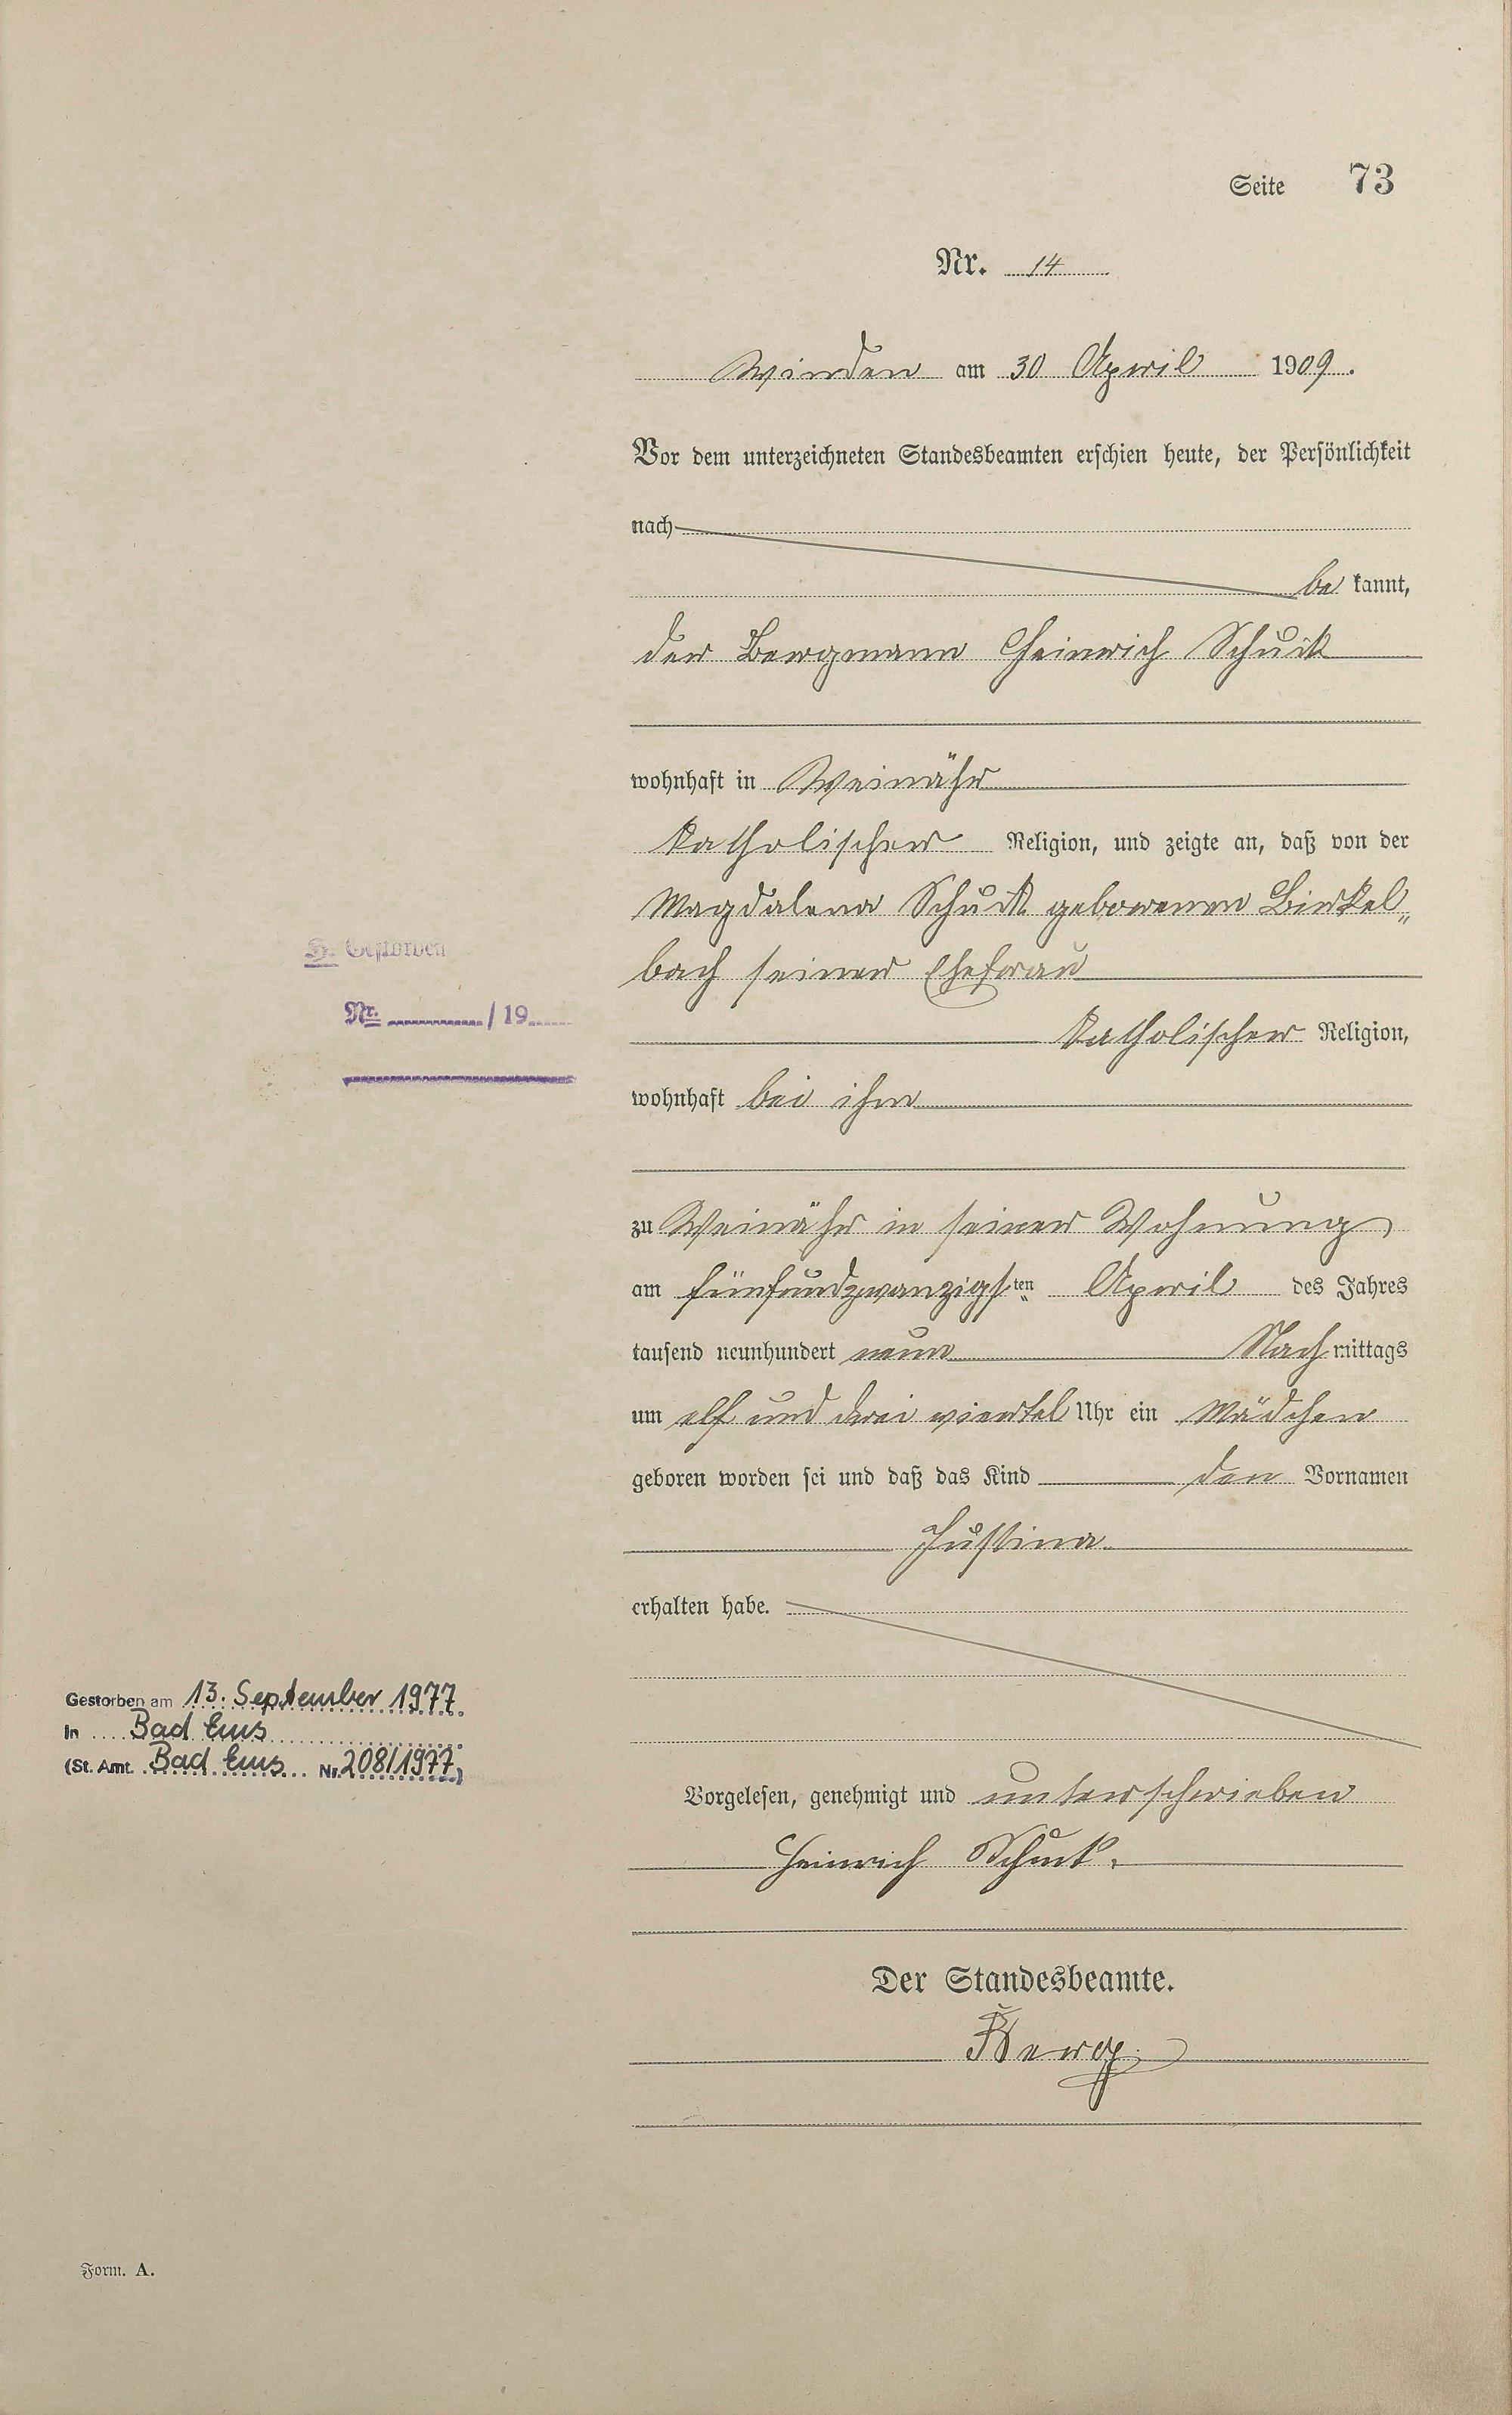 Seite 73
Nr. 14
Winden am 30 April 1909.
Vor dem unterzeichneten Standesbeamten erschien heute, der Persönlichkeit
nach
be kannt,
der Bergmann Heinrich Schuck
wohnhaft in Weinähr
katholischer Religion, und zeigte an, daß von der
Magdalena Schuck geborenen Birkel„
bach seiner Ehefrau
katholischer Religion,
wohnhaft bei ihm
zu Weinähr in seiner Wohnung
am fünfundzwanzigsten April des Jahres
tausend neunhundert neun Nach mittags
um elf und drei viertel Uhr ein Mädchen
geboren worden sei und daß das Kind den Vornamen
Justina
erhalten habe.
Vorgelesen, genehmigt und unterschrieben
Heinrich Schuck.
Der Standesbeamte.
H. Gestorben
Nr. / 19
Gestorben am 13. September 1977
in Bad Ems
(St. Amt. Bad Ems Nr. 208/1977)
Form. A.